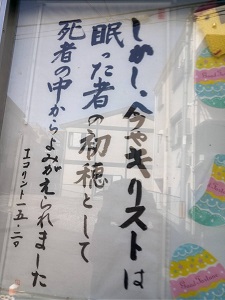 しかし、今やキリストは
眠った者の初穂として
死者の中からよみがえられました
Iコリント一五・二〇